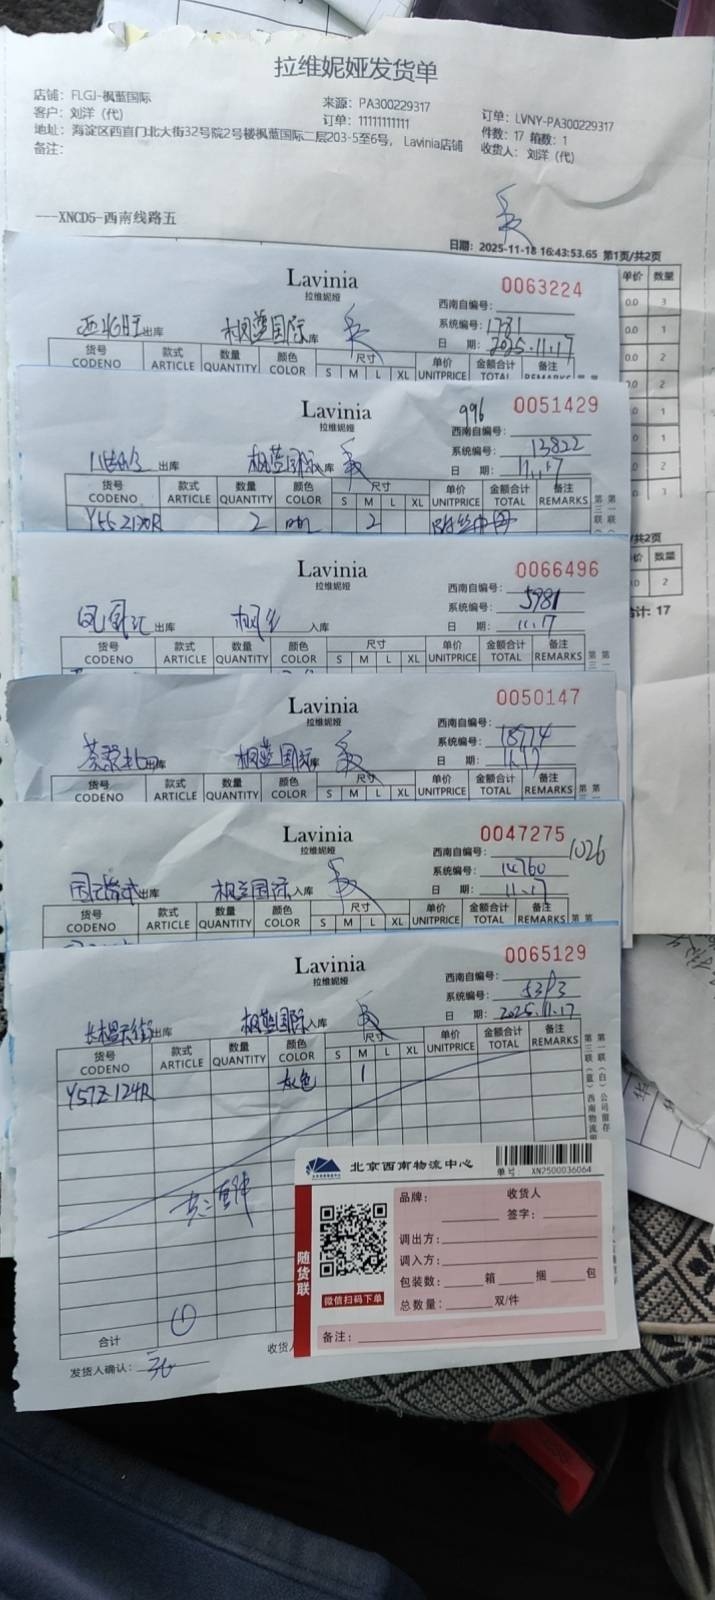 拉维妮娅发货单
店铺：FLGJ-枫蓝国际
来源：PA300229317
订单：LVNY-PA300229317
客户：刘洋（代）
订单：11111111111
件数：17 箱数：1
地址：海淀区西直门北大街32号院2号楼枫蓝国际二层203-5至6号，Lavinia店铺
收货人：刘洋（代）
备注：
---XNCD5-西南线路五
日期：2025-11-18 16:43:53.65 第1页/共2页
单价 数量
0.0 3
0.0 1
0.0 2
2
1
1
2
3
/共2页
价 数量
.0 2
计：17
Lavinia
拉维妮娅
0063224
西南自编号：
系统编号：1781
日 期：2025.11.17
出库 枫蓝国际库
货号 款式 数量 颜色 尺寸 单价 金额合计 备注
CODENO ARTICLE QUANTITY COLOR S M L XL UNITPRICE TOTAL REMARKS
Lavinia
拉维妮娅
996 0051429
西南自编号：
系统编号：13822
日 期：11.17
出库 枫蓝国际入库
货号 款式 数量 颜色 尺寸 单价 金额合计 备注
CODENO ARTICLE QUANTITY COLOR S M L XL UNITPRICE TOTAL REMARKS
2 2
Lavinia
拉维妮娅
0066496
西南自编号：
系统编号：5981
日 期：11.17
出库 入库
货号 款式 数量 颜色 尺寸 单价 金额合计 备注
CODENO ARTICLE QUANTITY COLOR S M L XL UNITPRICE TOTAL REMARKS
Lavinia
拉维妮娅
0050147
西南自编号：
系统编号：
日 期：11.17
出库 枫蓝国际库
货号 款式 数量 颜色 尺寸 单价 金额合计 备注
CODENO ARTICLE QUANTITY COLOR S M L XL UNITPRICE TOTAL REMARKS
Lavinia
拉维妮娅
0047275
1026
西南自编号：
系统编号：14760
日 期：11.17
出库 枫蓝国际入库
货号 款式 数量 颜色 尺寸 单价 金额合计 备注
CODENO ARTICLE QUANTITY COLOR S M L XL UNITPRICE TOTAL REMARKS
Lavinia
拉维妮娅
0065129
西南自编号：
系统编号：
日 期：2025.11.17
长楹天街出库 枫蓝国际入库
货号 款式 数量 颜色 尺寸 单价 金额合计 备注
CODENO ARTICLE QUANTITY COLOR S M L XL UNITPRICE TOTAL REMARKS
Y57Z124R 灰色 1
合计 ①
发货人确认：
收货人
北京西南物流中心
单号：XN2500036064
随货联
微信扫码下单
品牌： 收货人
签字：
调出方：
调入方：
包装数： 箱 捆 包
总数量： 双/件
备注：